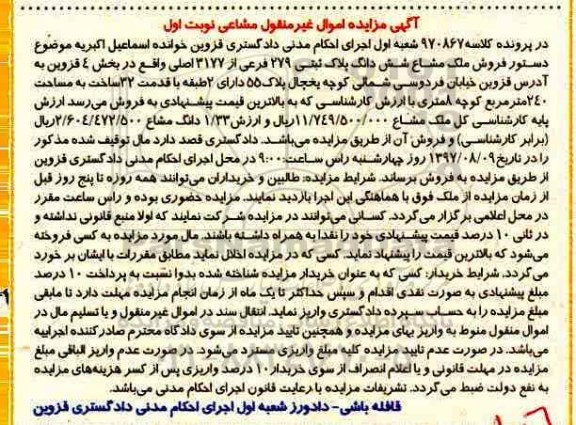 آگهی مزایده اموال غیرمنقول مشاعی نوبت اول
در پرونده کلاسه ۹۷۰۸۶۷ شعبه اول اجرای احکام مدنی دادگستری قزوین خوانده اسماعیل اکبریه موضوع
دستور فروش ملک مشاع شش دانگ پلاک ثبتی ۲۷۹ فرعی از ۳۱۷۷ اصلی واقع در بخش ۴ قزوین به
آدرس قزوین خیابان فردوسی شمالی کوچه یخچال پلاک ۵۵ دارای ۲طبقه با قدمت ۳۲ساخت به مساحت
۲۴۰مترمربع کوچه ۸متری با ارزش کارشناسی که به بالاترین قیمت پیشنهادی به فروش می‌رسد ارزش
پایه کارشناسی کل ملک مشاع ۱۱/۷۴۹/۵۰۰/۰۰۰ریال و ارزش۱/۳۳ دانگ مشاع ۲/۶۰۴/۴۷۲/۵۰۰ریال
(برابر کارشناسی) و فروش آن از طریق مزایده می‌باشد. دادگستری قصد دارد مال توقیف شده مذکور
را در تاریخ ۱۳۹۷/۰۸/۰۹ روز چهارشنبه راس ساعت:۹:۰۰ در محل اجرای احکام مدنی دادگستری قزوین
از طریق مزایده به فروش برساند. شرایط مزایده: طالبین و خریداران می‌توانند همه روزه تا پنج روز قبل
از زمان مزایده از ملک فوق با هماهنگی این اجرا بازدید نمایند. مزایده حضوری بوده و راس ساعت مقرر
در محل اعلامی برگزار می‌گردد. کسانی می‌توانند در مزایده شرکت نمایند که اولا منبع قانونی نداشته و
در ثانی ۱۰ درصد قیمت پیشنهادی خود را نقدا به همراه داشته باشند. مال مورد مزایده به کسی فروخته
می‌شود که بالاترین قیمت را پیشنهاد نماید. کسی که در مزایده اخلال نماید مطابق مقررات با ایشان بر خورد
می گردد. شرایط خریدار: کسی که به عنوان خریدار مزایده شناخته شده بدوا نسبت به پرداخت ۱۰ درصد
مبلغ پیشنهادی به صورت نقدی اقدام و سپس حداکثر تا یک ماه از زمان انجام مزایده مهلت دارد تا مابقی
مبلغ مزایده را به حساب سپرده دادگستری واریز نماید. انتقال سند در اموال غیرمنقول و یا تسلیم مال در
اموال منقول منوط به واریز بهای مزایده و همچنین تایید مزایده از سوی دادگاه محترم صادر کننده اجراییه
می‌باشد. در صورت عدم تایید مزایده کلیه مبلغ واریزی مسترد می‌شود. در صورت عدم واریز الباقی مبلغ
مزایده در مهلت قانونی و یا اعلام انصراف از سوی خریدار ۱۰ درصد واریزی پس از کسر هزینه‌های مزایده
به نفع دولت ضبط می گردد. تشریفات مزایده با رعایت قانون اجرای احکام مدنی می‌باشد.
قافله باشی- دادورز شعبه اول اجرای احکام مدنی دادگستری قزوین